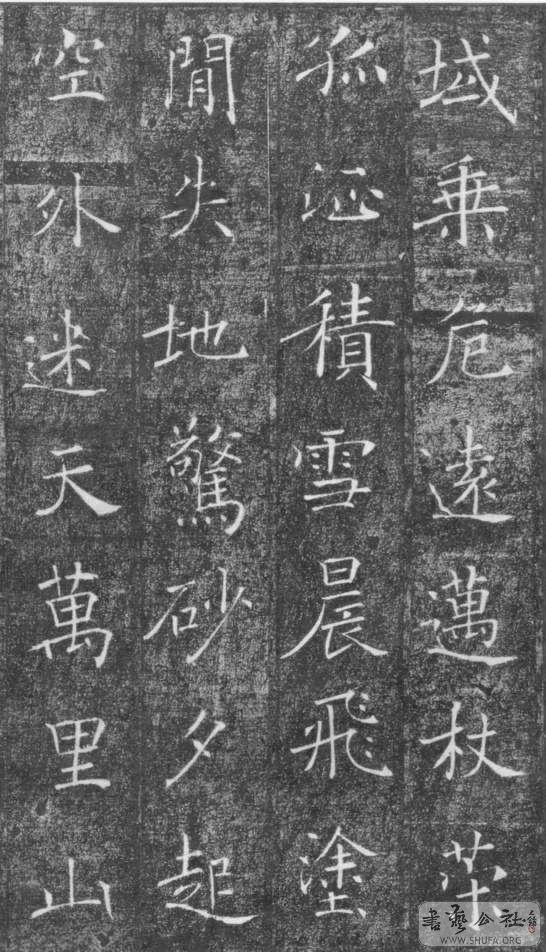 域乗危遠邁杖茦
孤征積雪晨飛塗
閒失地驚砂夕起
空外迷天萬里山
書藝公社
WWW.SHUFA.ORG